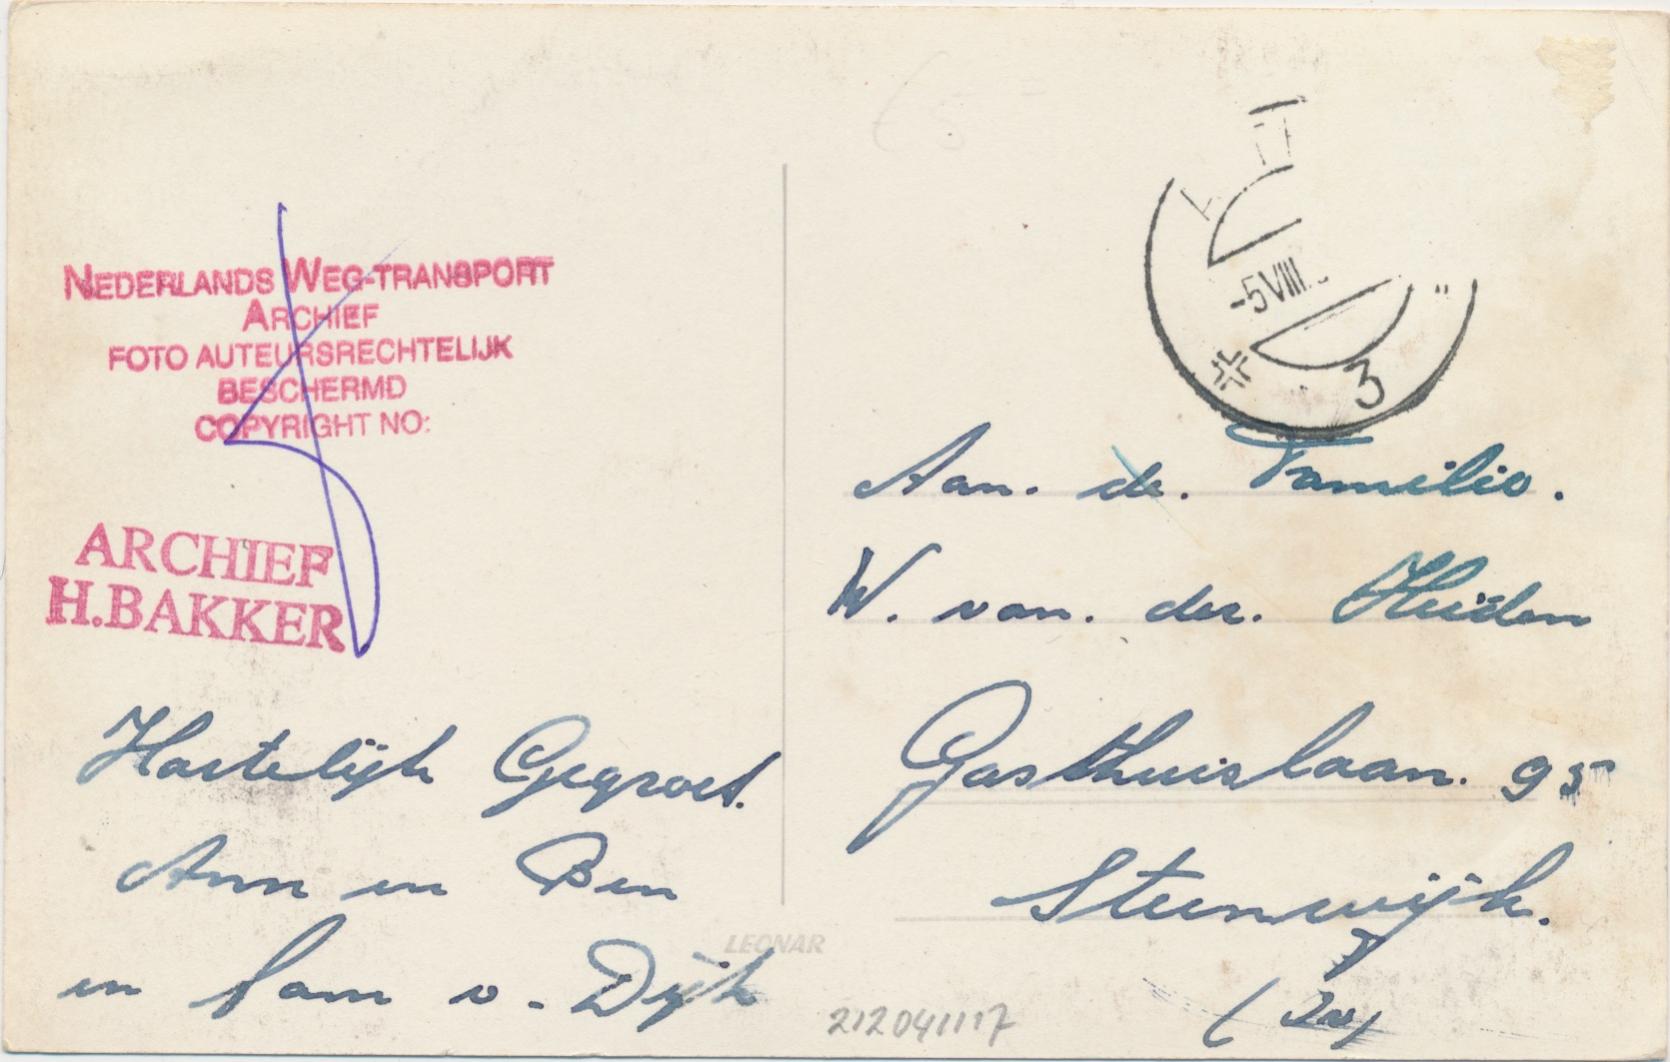 NEDERLANDS WEG-TRANSPORT
ARCHIEF
FOTO AUTEURSRECHTELIJK
BESCHERMD
COPYRIGHT NO:
ARCHIEF
H.BAKKER
Hartelijk Gegroet.
Ann en Ben
en fam v. Dijk
LEONAR
212041117
-5 VIII
3
Aan. de. Familie.
W. van. der. Heiden
Gasthuislaan. 95
Steenwijk.